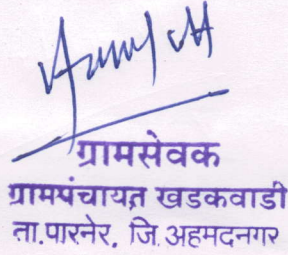 ग्रामसेवक
ग्रामपंचायत खडकवाडी
ता.पारनेर, जि.अहमदनगर